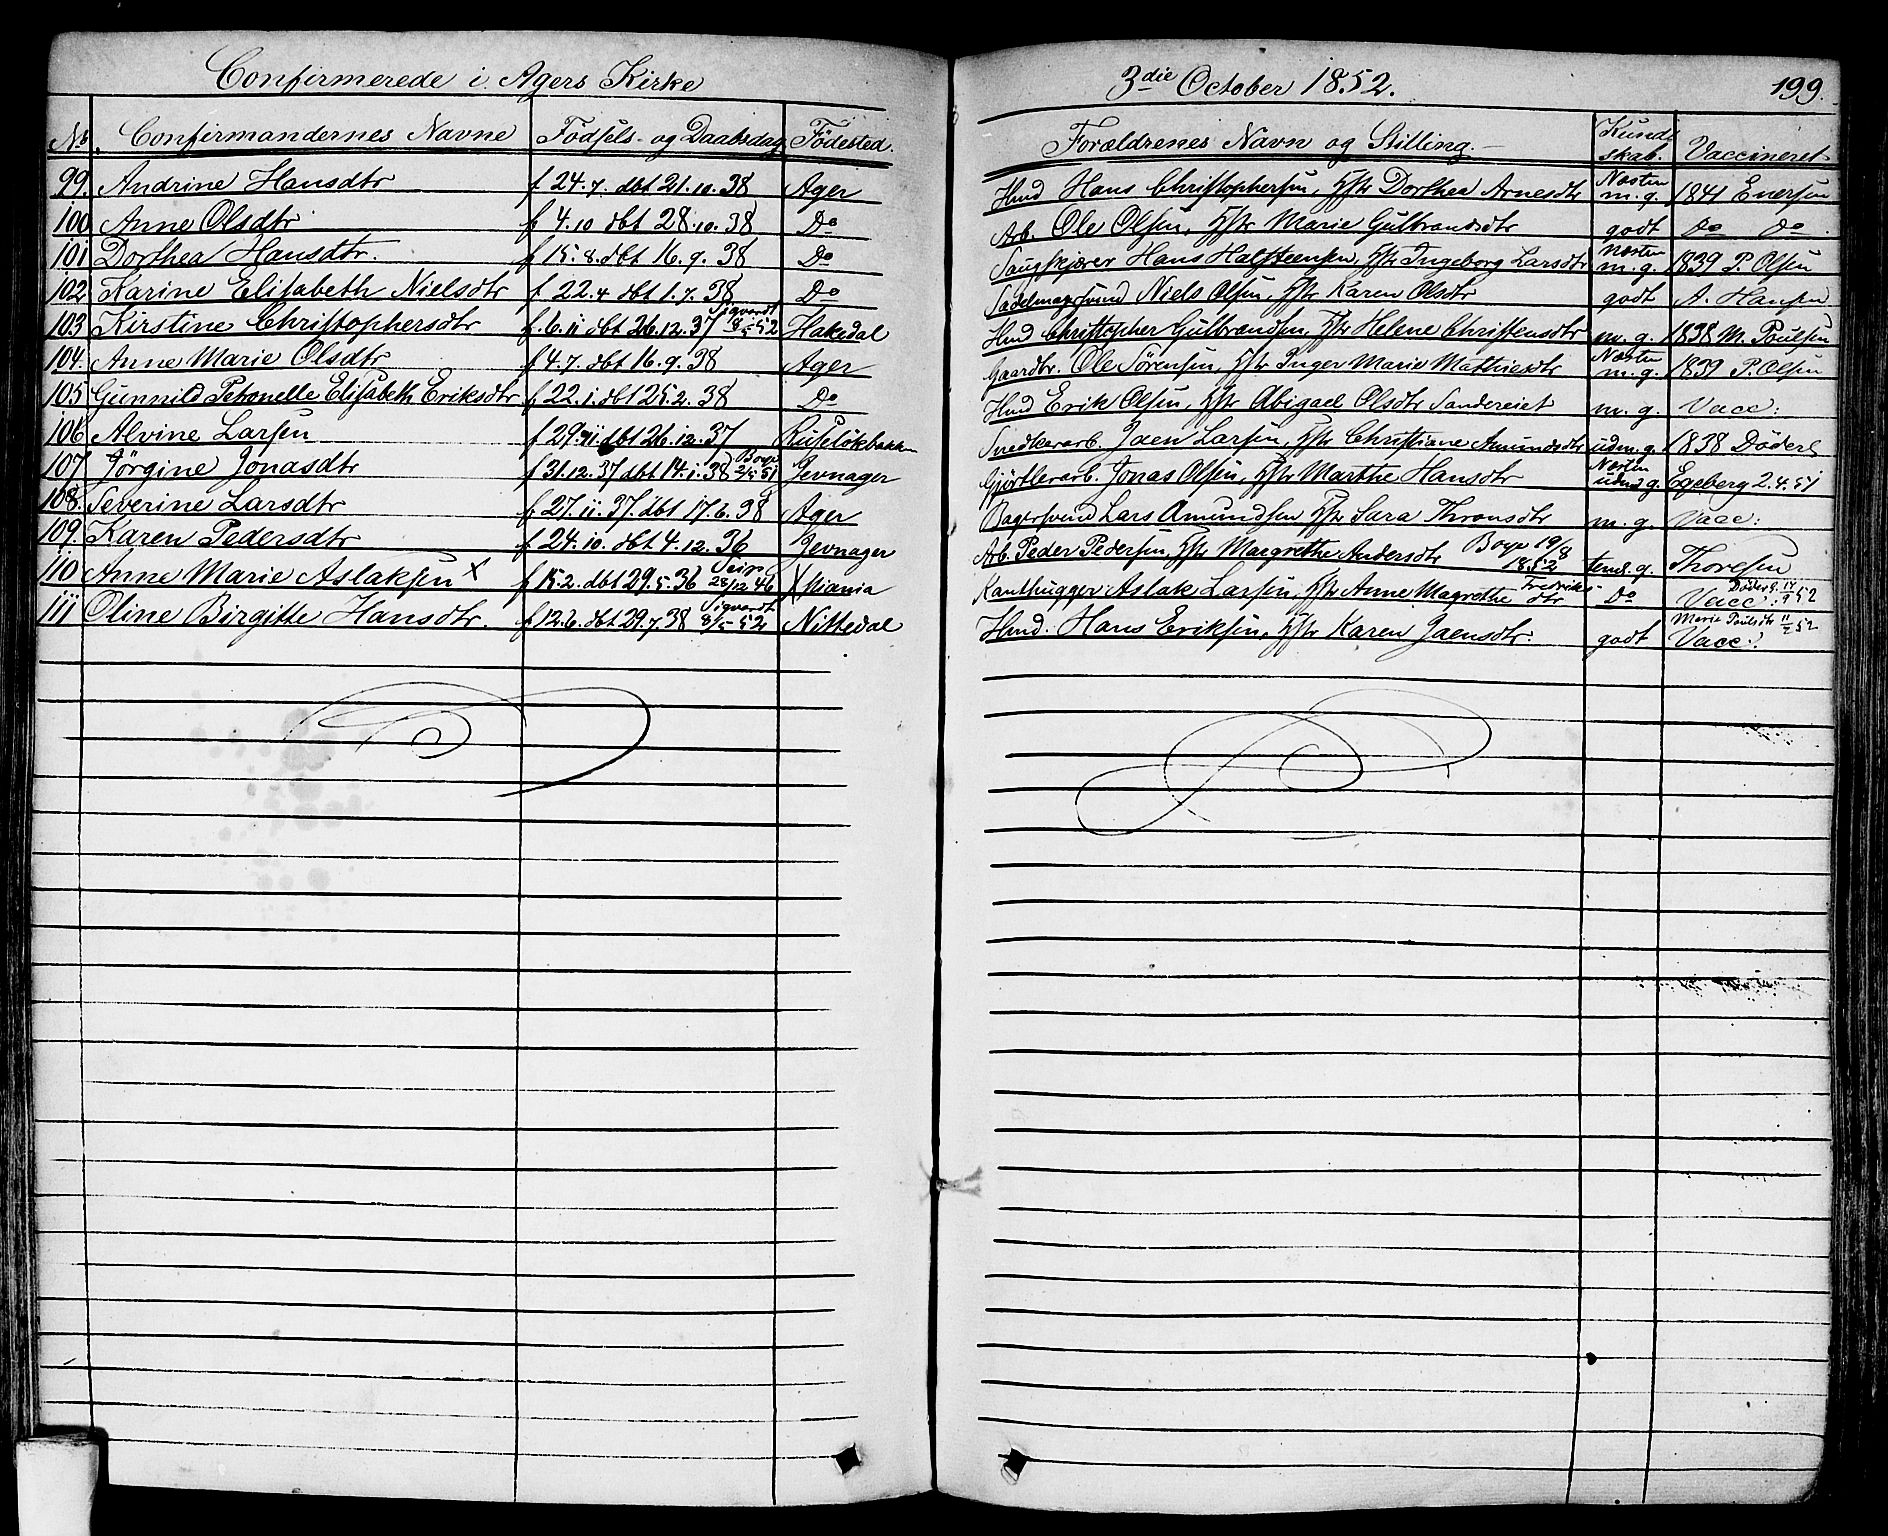 Confirmerede i Agers Kirke
3die October 1852.
199.
No. Confirmandernes Navne Födsels- og Daabsdag Födested. Forældrenes Navn og Stilling.- Kundskab. Vaccineret
99. Andrine Hansdtr f 24.7. dbt 21.10.38 Ager Hmd Hans Christophersen, Hstr Dorthea Arnesdtr Næsten m.g. 1841 Enersen
100 Anne Olsdtr f 4.10 dbt 28.10.38 Do Arb. Ole Olsen, Hstr Marie Gulbrandsdtr godt Do Do
101 Dorthea Hansdtr. f 15.8. dbt 16.9.38 Do Saugskjærer Hans Halsteensen, Hstr Ingeborg Larsdtr Næsten m.g. 1839 P. Olsen
102 Karine Elisabeth Nielsdtr f 22.4 dbt 1.7.38 Do Sadelmagersvend Niels Olsen, Hstr Karen Olsdtr godt A. Hansen
103 Kirstine Christophersdtr f. 6.11 dbt 26.12.37 Sigvardt 8/5 52 Hakedal Hmd Christopher Gulbrandsen, Hstr Helene Christensdtr m.g. 1838 M. Poulsen
104. Anne Marie Olsdtr f 4.7. dbt 16.9.38 Ager Gaardbr. Ole Sörensen, Hstr Inger Marie Mathiesdtr Næsten m.g. 1839 P. Olsen
105 Gunnild Petronelle Elisabeth Eriksdtr f 22.1. dbt 25.2.38 Do Hmd Erik Olsen, Hstr Abigael Olsdtr Sandereiet m.g. Vacc:
106 Alvine Larsen f 29.11. dbt 26.12.37 Ruselökbakken Snedkerarb. Jaen Larsen, Hstr Christiane Amundsdtr udm.g. 1838 Döderl
107 Jörgine Jonasdtr f 31.12.37 dbt 14.1.38 Boye 2/5 51 Jevnager Gjörtlerarb. Jonas Olsen, Hstr Marthe Hansdtr Næsten udm g. Egeberg 2.4.51
108. Severine Larsdtr f 27.11.37. dbt 17.6.38 Ager Bagersvend Lars Amundsen Hstr Sara Thronsdtr m.g. Vacc:
109. Karen Pedersdtr f 24.10. dbt 4.12.36 Jevnager Arb. Peder Pedersen, Hstr Margrethe Andersdtr Boye 19/8 1852 tem. g. Thoresen
110 Anne Marie Aslaksen X f 15.2. dbt 29.5.36 Seip 28/12 46 Xstiania Kanthugger Aslak Larsen, Hstr Anne Magrethe Fredriksdtr Do Vacc: Döderl. 14/9 52
111 Oline Birgitte Hansdtr. f 12.6. dbt 29.7.38 Sigvardt 8/5 52 Nittedal Hmd. Hans Eriksen, Hstr Karen Jaensdtr. godt Vacc: Marie Poulsdtr 11/2 52